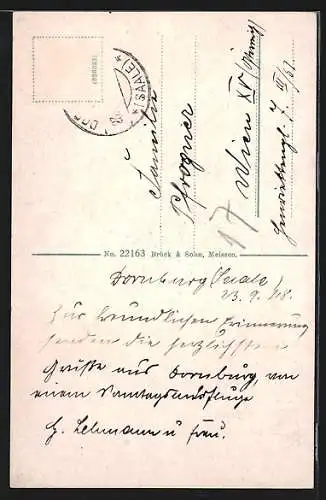 (SAALE)
Familie
Pfrogner
Wien XV
17
No. 22163 Brück & Sohn, Meissen.
Dornburg (Saale)
23.9.18.
Zur freundlichen Erinnerung
senden die herzlichsten
Grüße aus Dornburg, von
einem Sonntagsausfluge
H. Lehmann u Frau.